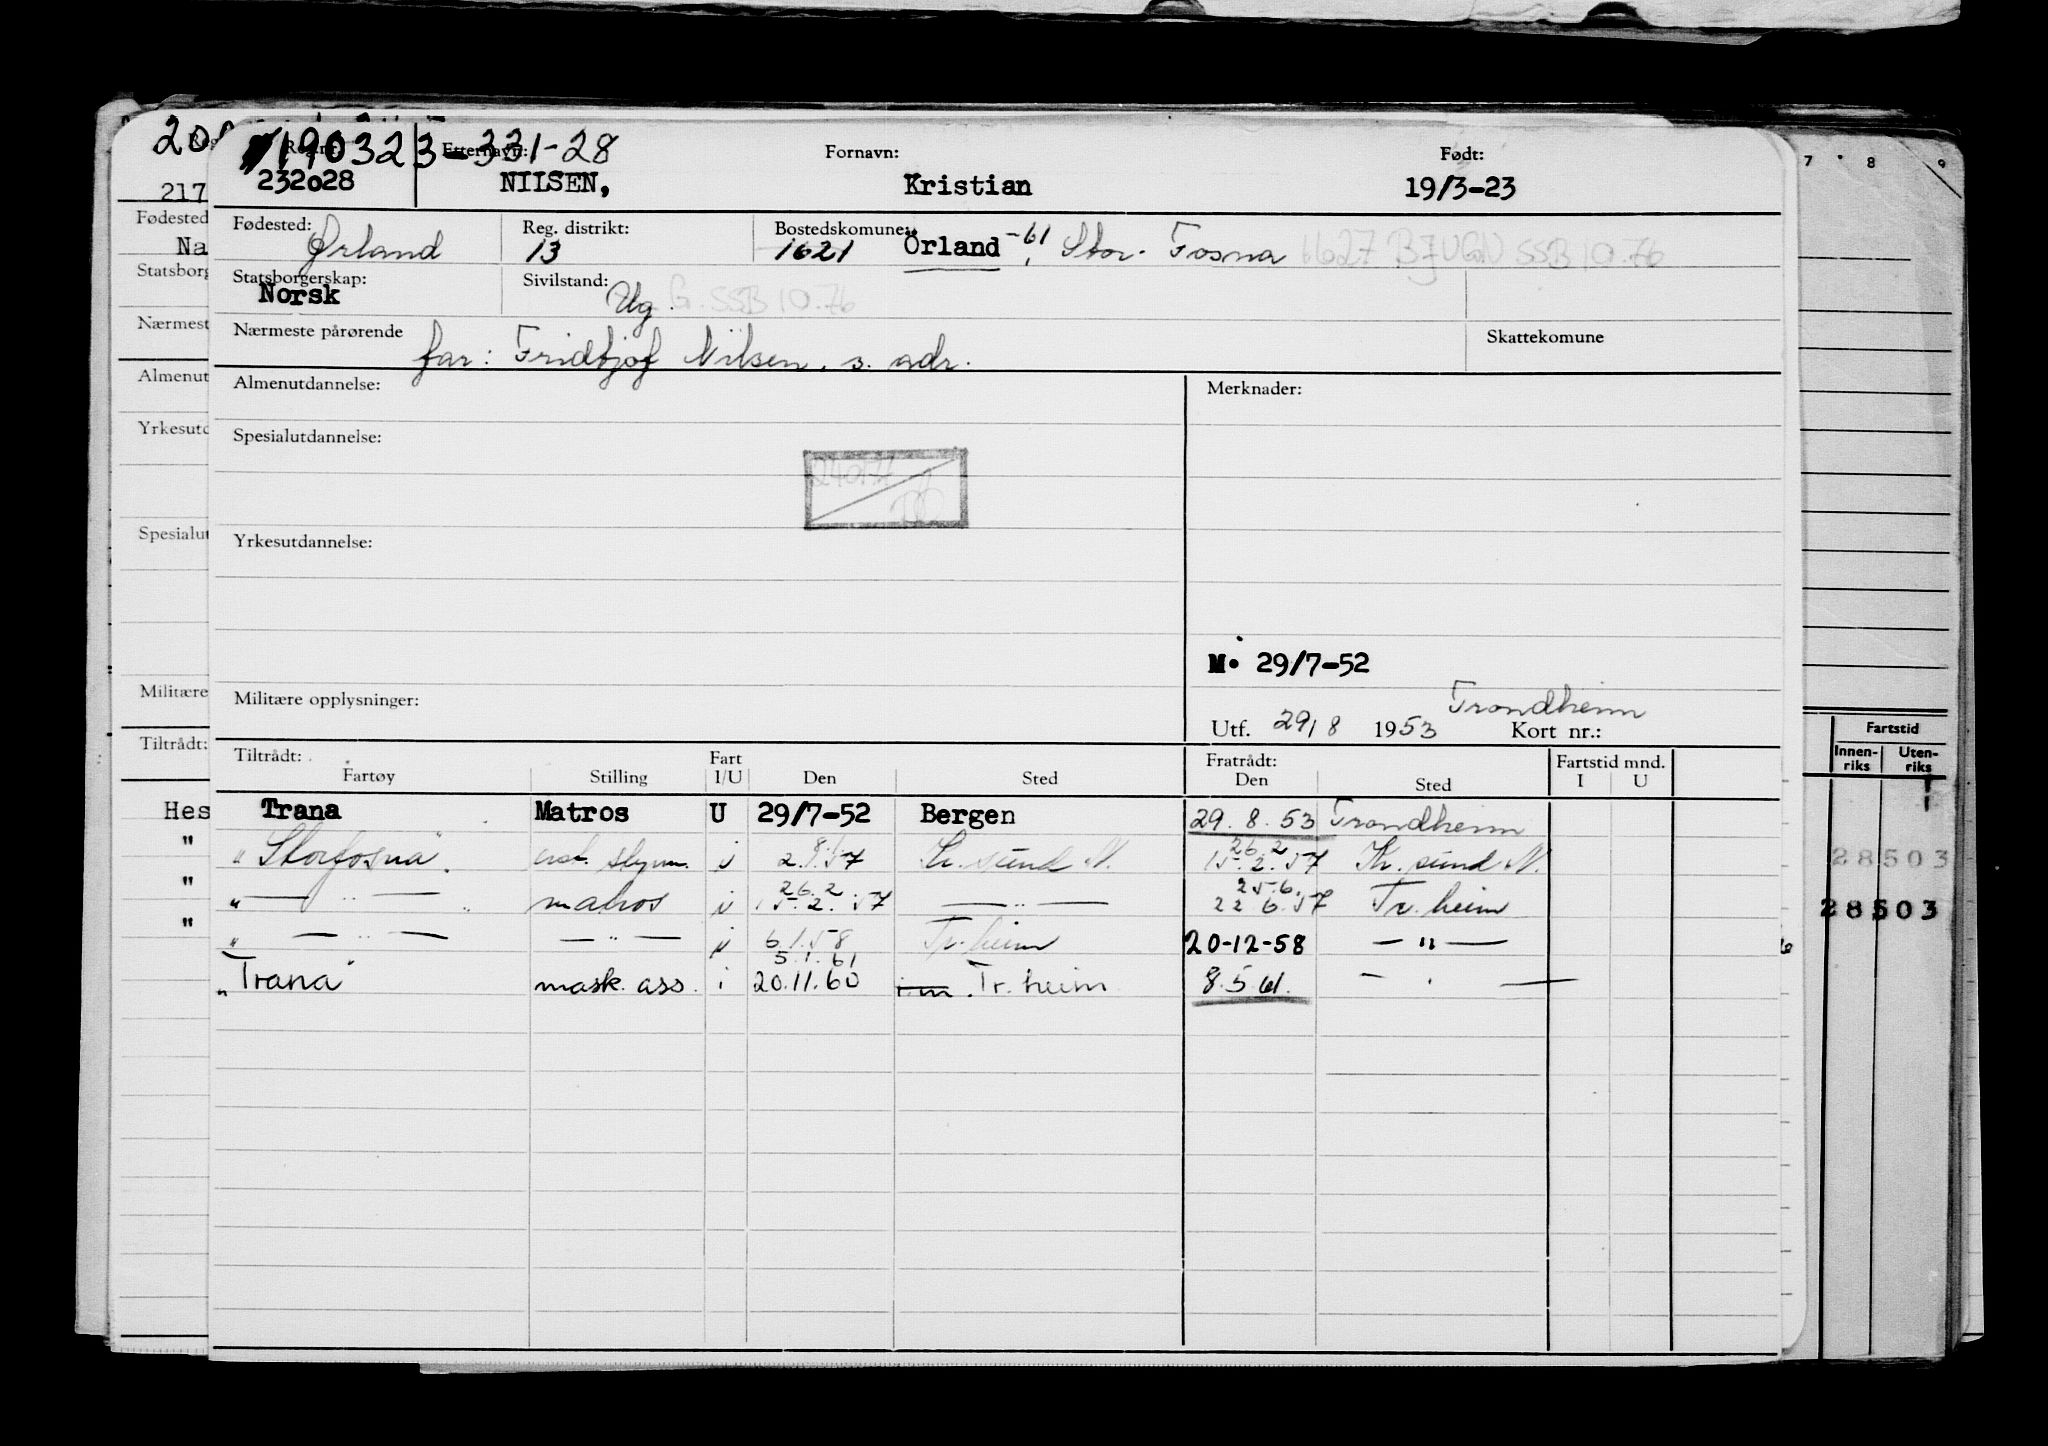 190323-331-28
Reg.nr. Etternavn: Fornavn: Født:
232028 NILSEN, Kristian 19/3-23
Fødested: Ørland Reg. distrikt: 13 Bostedskomune: 1621 Örland -61 Stor-Fosna 1627 BJUGN SSB 10.76
Statsborgerskap: Norsk Sivilstand: Ug. G. SSB 10.76
Nærmeste pårørende far: Fridtjof Nilsen, s. adr. Skattekomune
Almenutdannelse: Merknader:
Spesialutdannelse:
Yrkesutdannelse:
M. 29/7-52
Militære opplysninger: Utf. 29/8 1953 Trondheim Kort nr.:
Tiltrådt: Fart Fratrådt: Fartstid mnd.
Fartøy Stilling I/U Den Sted Den Sted I U
Trana Matros U 29/7-52 Bergen 29.8.53 Trondheim
8.1. 26.2
"Storfosna" i 2.1.57 Kr.sund N. 15.2.57 Kr.sund N.
26.2 25.6.
" — " — matros i 15.2.57 — " — 22.6.57 Tr.heim
" — " — — " — i 6.1.58 Tr.heim 20-12-58 — " —
5.1.61
"Trana" mask. ass. i 20.11.60 Tr.heim 8.5.61. — " —
217
Fødested
Na
Statsborg
Nærmest
Almenut
Yrkesutd
Spesialut
Militære
Tiltrådt:
Hes
"
"
"
7 8 9
Fartstid
Innen-riks Uten-riks
28503
28503